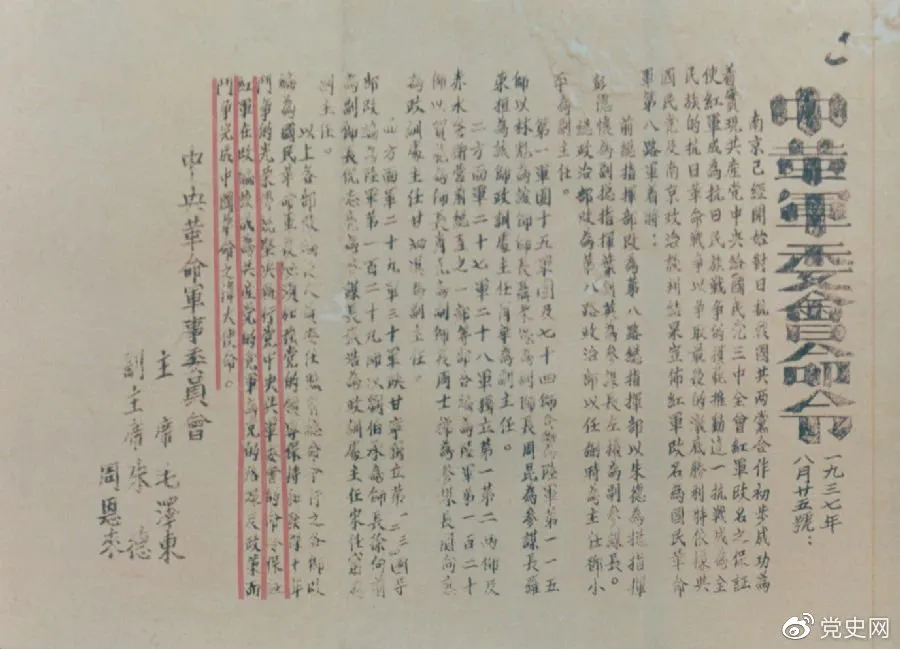 中革軍委會命令
一九三七年
八月廿五號：
南京已經開始對日抗戰國共兩黨合作初步成功為
着實現共產党中央給國民党三中全會紅軍改名之保証
使紅軍成為抗日民族戰爭的模範推動這一抗戰成為全
民族的抗日革命戰爭以爭取最後的澈底勝利特依據與
國民党及南京政治談判結果宣佈紅軍改名為國民革命
軍第八路軍着將：
前總指揮部改為第八路總指揮部以朱德為總指揮
彭德懷為副總指揮葉劍英為參謀長左權為副參謀長。
總政治部改為第八路政治部以任弼時為主任鄧小
平為副主任。
第一軍團十五軍團及七十四師合編為陸軍第一一五
師以林彪為該師師長聶榮臻為副師長周昆為參謀長羅
榮桓為該師政訓處主任蕭華為副主任。
二方面軍二十七軍二十八軍獨立第一第二兩師及
赤水警衛營前總直之一部等部合編為陸軍第一百二十
師以賀龍為師長蕭克為副師長周士第為參謀長關向應
為政訓處主任甘泗淇為副主任。
四方面軍二十九軍三十軍陝甘寧獨立第一二三四等
部改編為陸軍第一百二十九師以劉伯承為師長徐向前
為副師長倪志亮為參謀長張浩為政訓處主任宋任窮為
副主任。
以上各部改編後人員委任照前總命令行之各師改
編為國民革命軍後必須加強党的領導保持和發揚十年
鬥爭的光榮傳統堅決執行党中央與軍委會的命令保証
紅軍在改編後成為共產党的党軍為党的路線及政策而
鬥爭完成中國革命之偉大使命。
中央革命軍事委員會
主席毛澤東
副主席朱德
周恩來
党史网